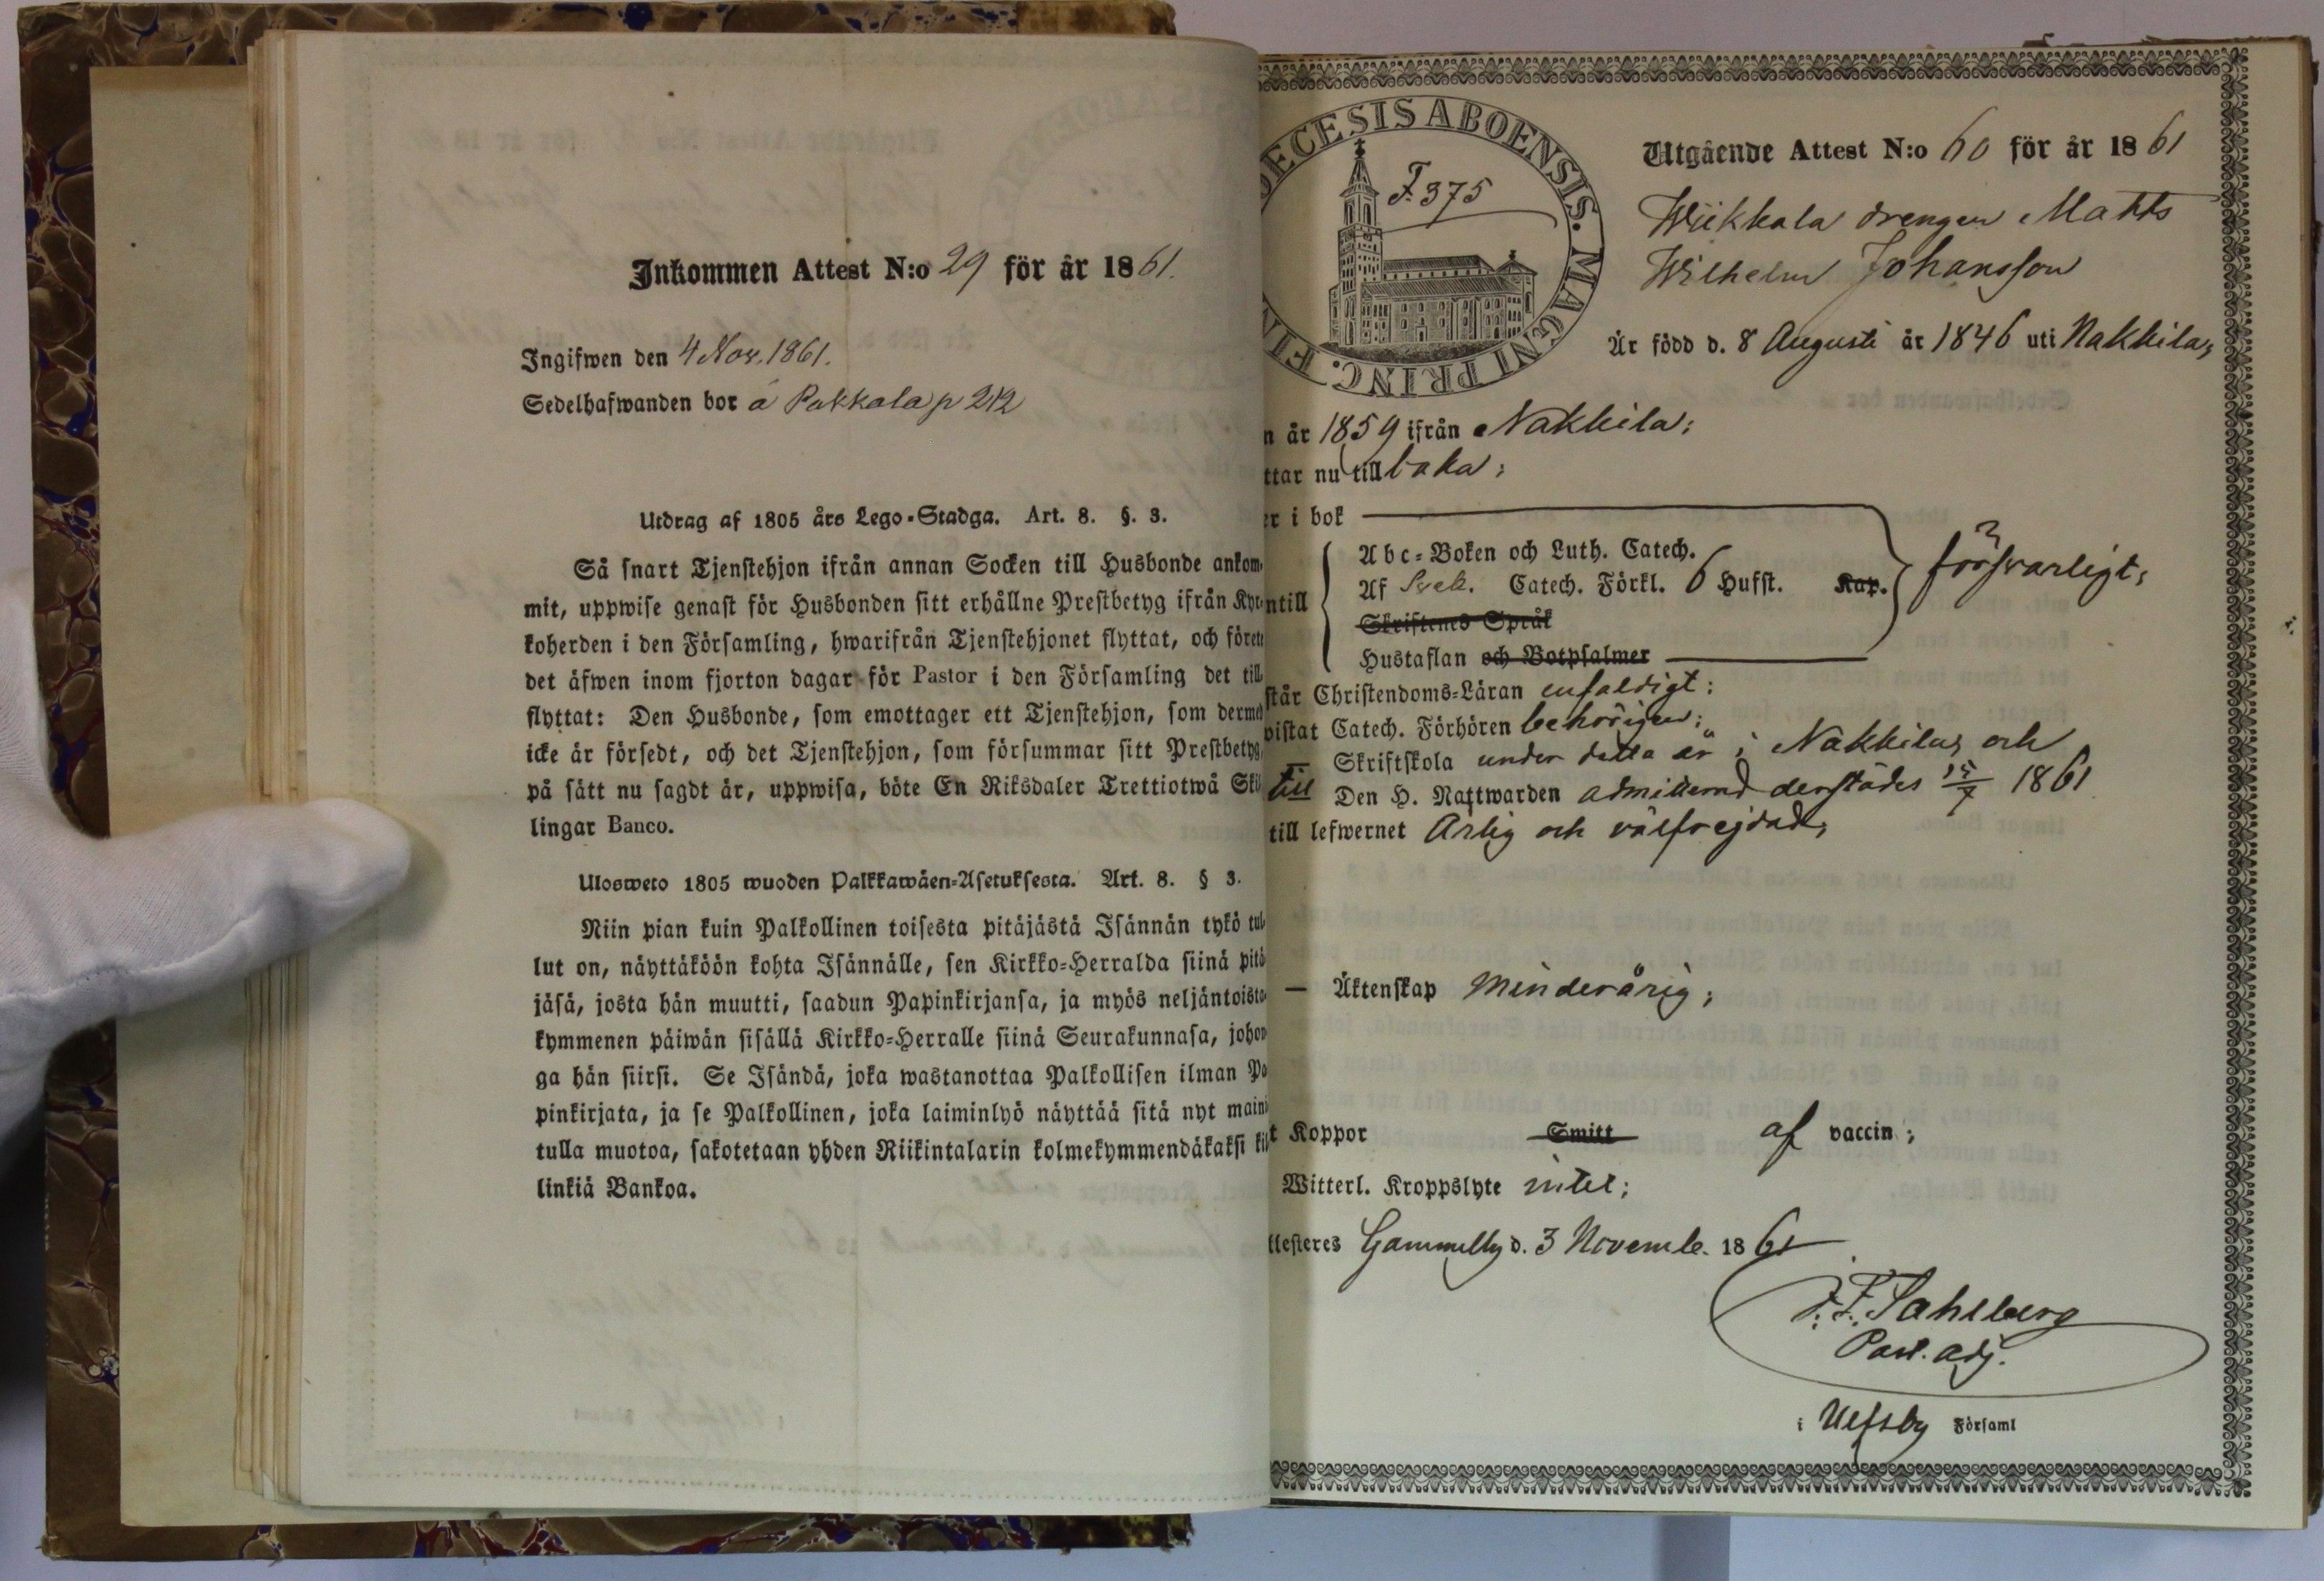 Inkommen Attest N:o 29 för år 1861.
Ingifwen den 4 Nov. 1861.
Sedelhafwanden bor å Pakkala p 212
Utdrag af 1805 års Lego-Stadga. Art. 8. §. 3.
Så snart Tjenstehjon ifrån annan Socken till Husbonde ankom-
mit, uppwise genast för Husbonden sitt erhållne Prestbetyg ifrån Kyr-
koherden i den Församling, hwarifrån Tjenstehjonet flyttat, och förete
det äfwen inom fjorton dagar för Pastor i den Församling det till-
flyttat: Den Husbonde, som emottager ett Tjenstehjon, som dermed
icke är försedt, och det Tjenstehjon, som försummar sitt Prestbetyg,
på sätt nu sagdt är, uppwisa, böte En Riksdaler Trettiotwå Skil
lingar Banco.
Ulosweto 1805 wuoden Palkkawäen-Asetuksesta. Art. 8. § 3.
Niin pian kuin Palkollinen toisesta pitäjästä Isännän tykö tul-
lut on, näyttäköön kohta Isännälle, sen Kirkko-Herralda siinä pitä
jäsä, josta hän muutti, saadun Papinkirjansa, ja myös neljäntoista-
kymmenen päiwän sisällä Kirkko-Herralle siinä Seurakunnasa, johon
ga hän siirsi. Se Isändä, joka wastanottaa Palkollisen ilman Pa
pinkirjata, ja se Palkollinen, joka laiminlyö näyttää sitä nyt maini
tulla muotoa, sakotetaan yhden Riikintalarin kolmekymmendäkaksi kil
linkiä Bankoa.
DECESIS ABOENSIS. MAGNI PRINC. FIN
F. 375
Utgående Attest N:o 60 för år 1861
Wiikkala drengen Matts
Wilhelm Johansson
Är född d. 8 Augusti år 1846 uti Nakkila;
n år 1859 ifrån Nakkila;
ttar nu tillbaka;
er i bok
Abc-Boken och Luth. Catech.
ntill Af Sveb. Catech. Förkl. 6 Hufst. Kap. försvarligt;
Skriftenes Språk
Hustaflan och Botpsalmer
står Christendoms-Läran enfaldigt;
vistat Catech. Förhören behörigen;
Skriftskola under detta år i Nakkila, och
till Den H. Nattwarden admitterad derstädes 15/7 1861
till lefwernet Ärlig och välfrejdad;
— Äktenskap Minderårig;
t Koppor Smitt af vaccin;
Witterl. Kroppslyte intet;
ttesteres Gammelby d. 3 Novemb. 1861
F. F. Sahlberg
Past. adj.
i Ulfsby Församl